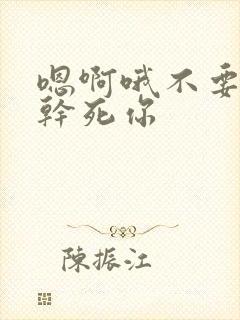 嗯啊哦不要
幹死你
陳振江